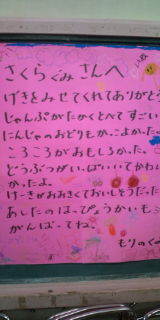 さくらぐみさんへ
げきをみせてくれてありがとう
じゃんぷがたかくとべてすごい
にんじゃのおどりもかこよかった
ころころがおもしろかった。
どうぶつがいっぱいいてかわい
かったよ。
けーきがおおきくておいしそうだった
あしたのはっぴょうかいも
がんばってね。
もりのぐみ